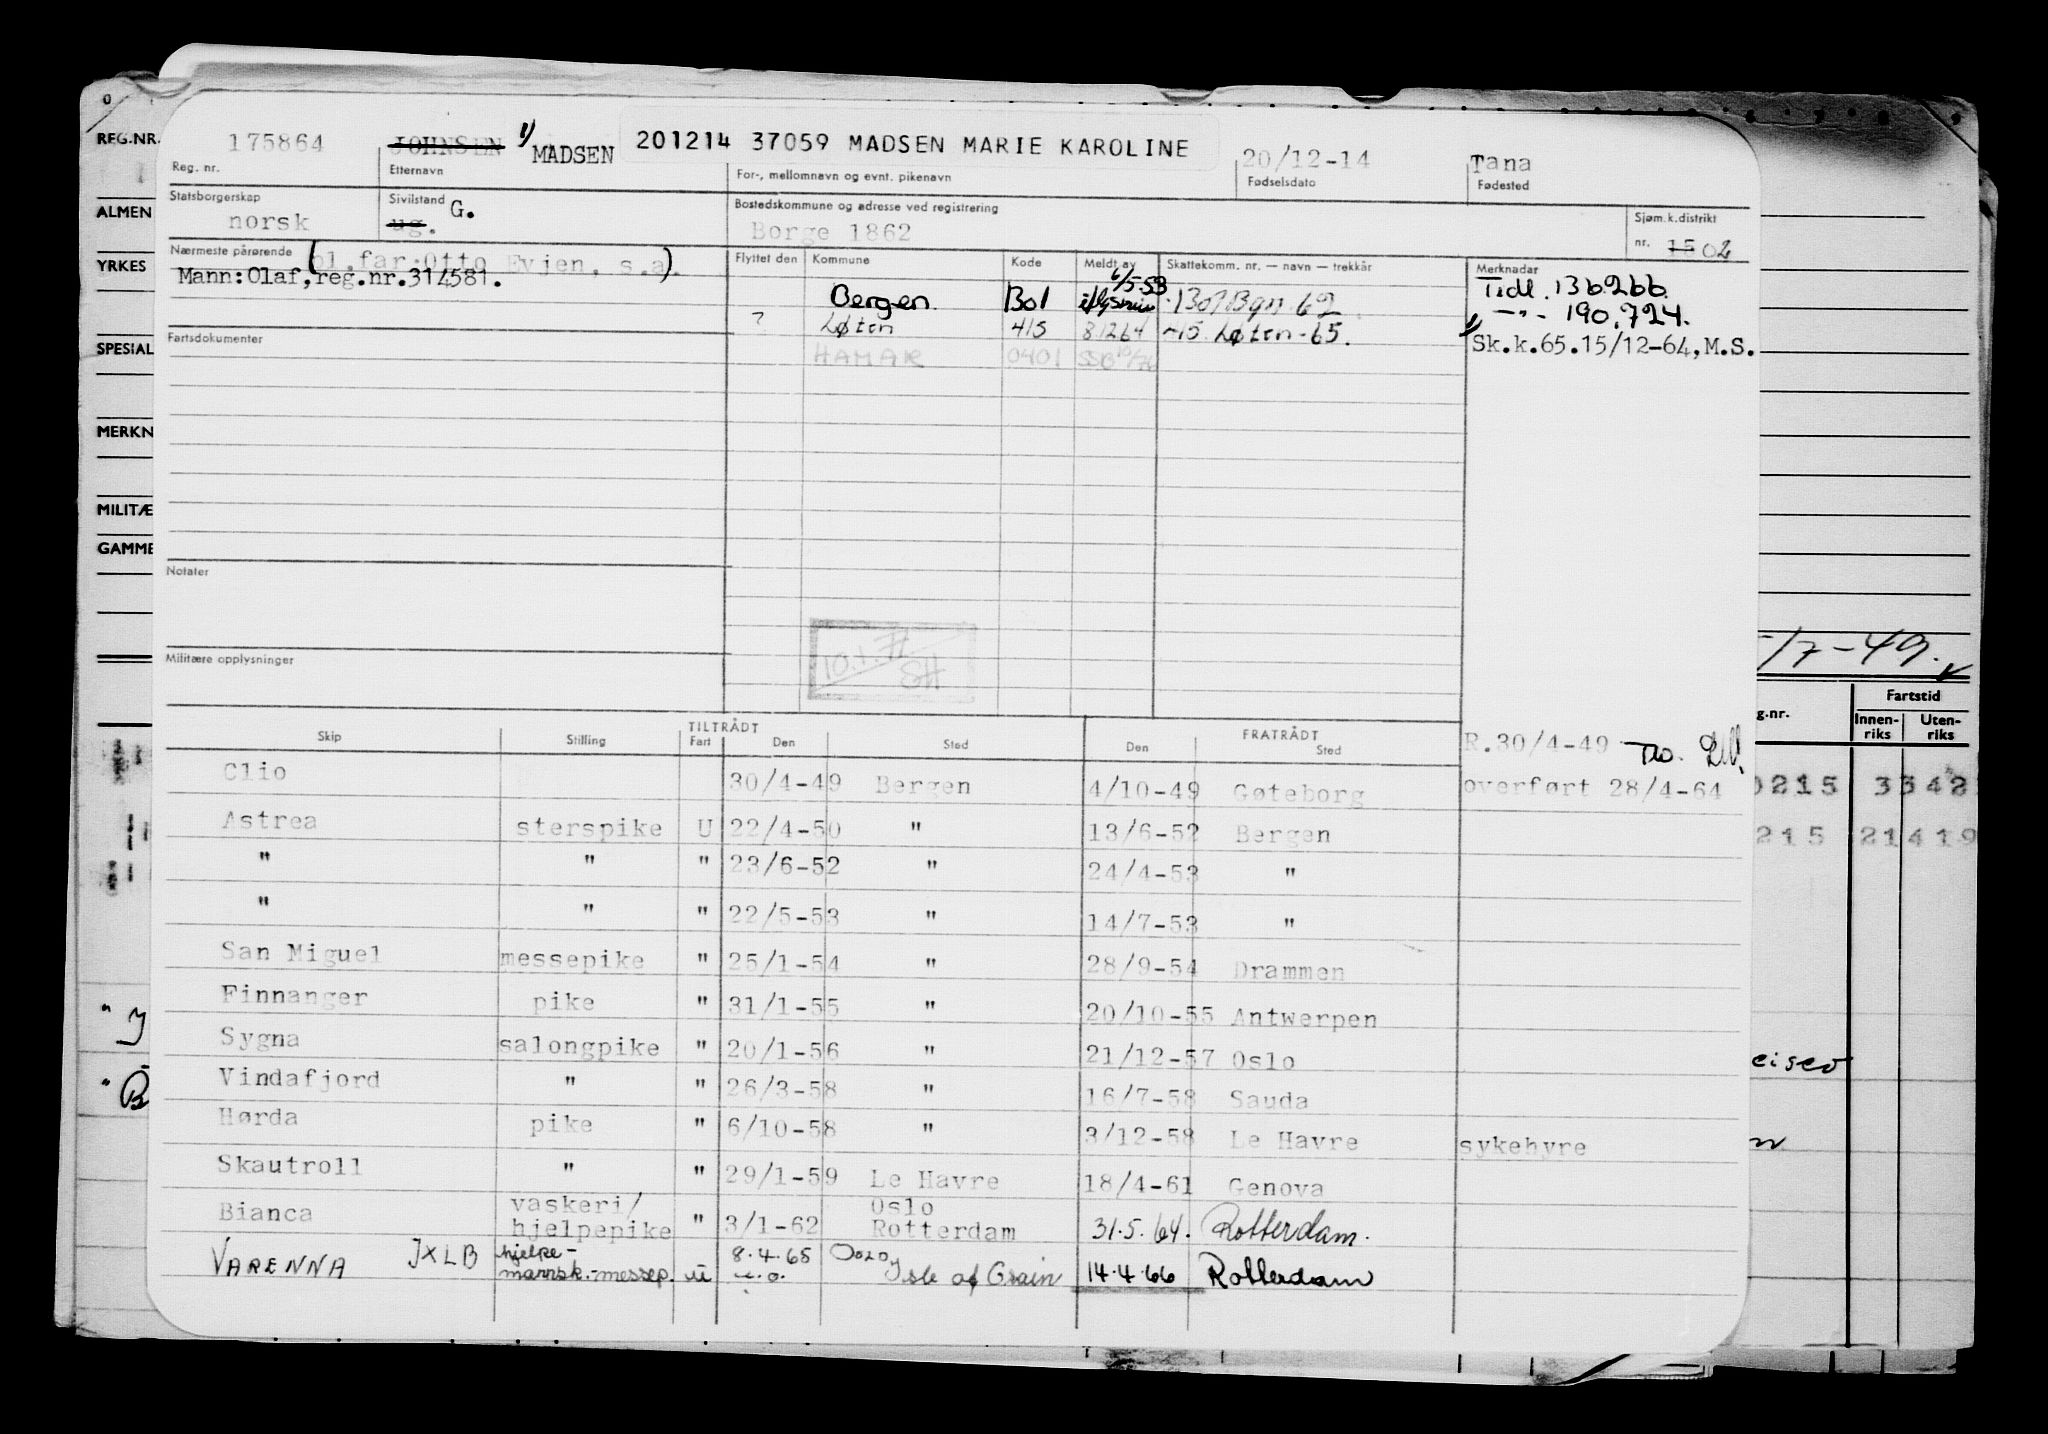 REG.NR.
ALMEN
YRKES
SPESIAL
MERKN
MILITÆ
GAMME
175864 JOHNSEN 1) MADSEN 201214 37059 MADSEN MARIE KAROLINE 20/12-14 Tana
Reg. nr. Etternavn For-, mellomnavn og evnt. pikenavn Fødselsdato Fødested
Statsborgerskap Sivilstand Bostedskommune og adresse ved registrering Sjøm.k.distrikt
norsk ug. G. Borge 1862 nr. 15 02
Nærmeste pårørende (pl.far:Otto Evjen, s.a). Flyttet den Kommune Kode Meldt av Skattekomm. nr. — navn — trekkår Merknader
Mann:Olaf,reg.nr.314581. 6/5-53 Tidl. 136266.
Bergen Bol - Bol Bgn. 62 — " - 190.724.
? Løten 415 81264 -15. Løten-65. 1) Sk.k.65.15/12-64,M.S.
Fartsdokumenter HAMAR 0401
Notater
10.1.77
SH
Militære opplysninger
5/7-49.
Fartstid
g.nr. Innen-riks Uten-riks
Skip Stilling TILTRÅDT Fart Den Sted FRATRÅDT Den Sted R.30/4-49
Clio 30/4-49 Bergen 4/10-49 Gøteborg overført 28/4-64 0215 3342
Astrea sterspike U 22/4-50 " 13/6-52 Bergen 215 21419
" " " 23/6-52 " 24/4-53 "
" " " 22/5-53 " 14/7-53 "
San Miguel messepike " 25/1-54 " 28/9-54 Drammen
Finnanger pike " 31/1-55 " 20/10-55 Antwerpen
Sygna salongpike " 20/1-56 " 21/12-57 Oslo
Vindafjord " " 26/3-58 " 16/7-58 Sauda
Hørda pike " 6/10-58 " 3/12-58 Le Havre sykehyre
Skautroll " " 29/1-59 Le Havre 18/4-61 Genova
Bianca vaskeri/hjelpepike " 3/1-62 Oslo Rotterdam 31.5.64. Rotterdam.
VARENNA JXLB hjelpe-mannsk.-messep. U 8.4.65 Oslo, Isle of Grain 14.4.66 Rotterdam